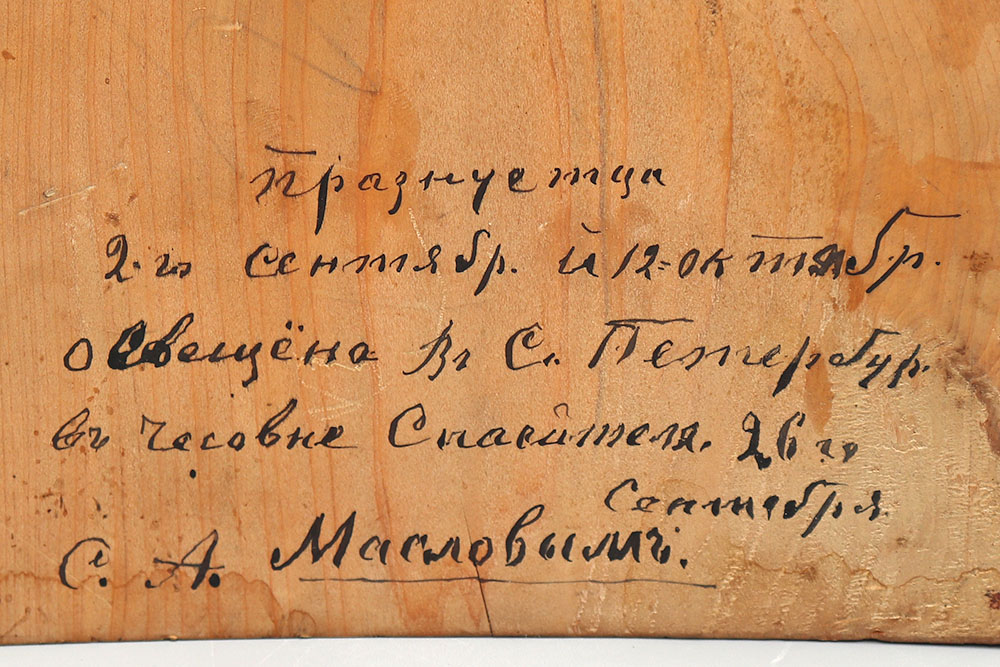 празнуетца
2-го сентябр. и 12-октябр.
освещёна Въ С. Петербур.
въ Чесовне Спасителя. 26 го
сентебря
С. А. Масловымъ.